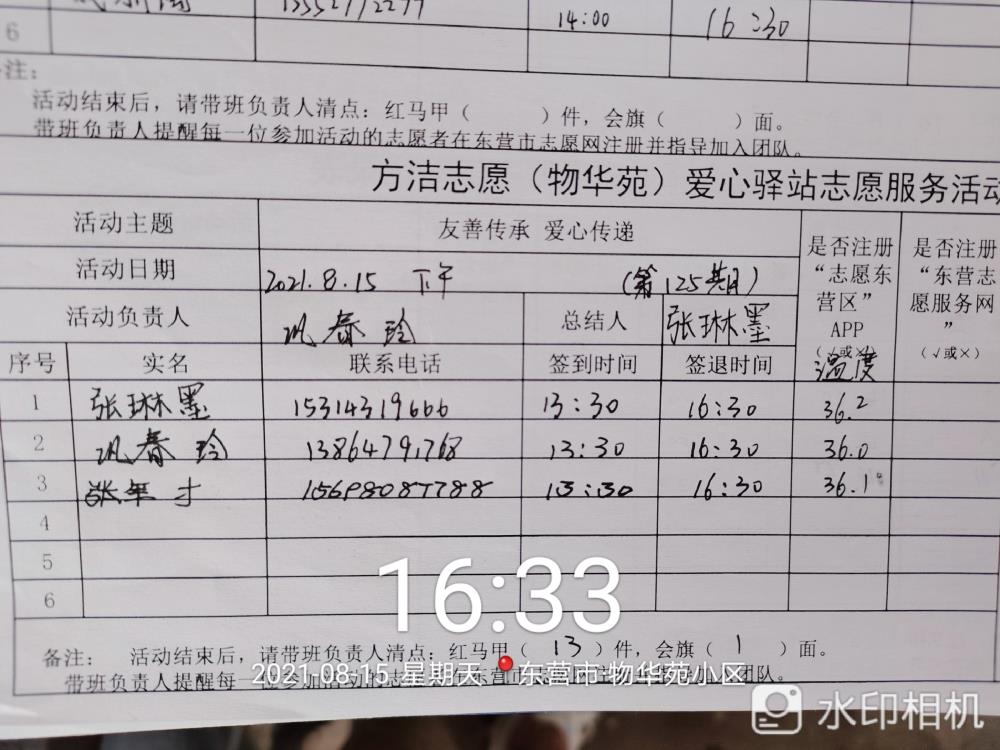 6 14:00 16:30
备注：
活动结束后，请带班负责人清点：红马甲（ ）件，会旗（ ）面。
带班负责人提醒每一位参加活动的志愿者在东营市志愿网注册并指导加入团队。
方洁志愿（物华苑）爱心驿站志愿服务活动
活动主题 友善传承 爱心传递
是否注册“志愿东营区”APP（√或×） 温度
是否注册“东营志愿服务网”（√或×）
活动日期 2021.8.15 下午 （第125期）
活动负责人 巩春玲 总结人 张琳墨
序号 实名 联系电话 签到时间 签退时间
1 张琳墨 15314319666 13:30 16:30 36.2
2 巩春玲 13864791768 13:30 16:30 36.0
3 张 才 15698087788 13:30 16:30 36.1°
4
5
6
16:33
备注： 活动结束后，请带班负责人清点：红马甲（ 13 ）件，会旗（ 1 ）面。
带班负责人提醒每一位参加活动的志愿者在东营市志愿网注册并指导加入团队。
2021-08-15 星期天 东营市·物华苑小区
水印相机